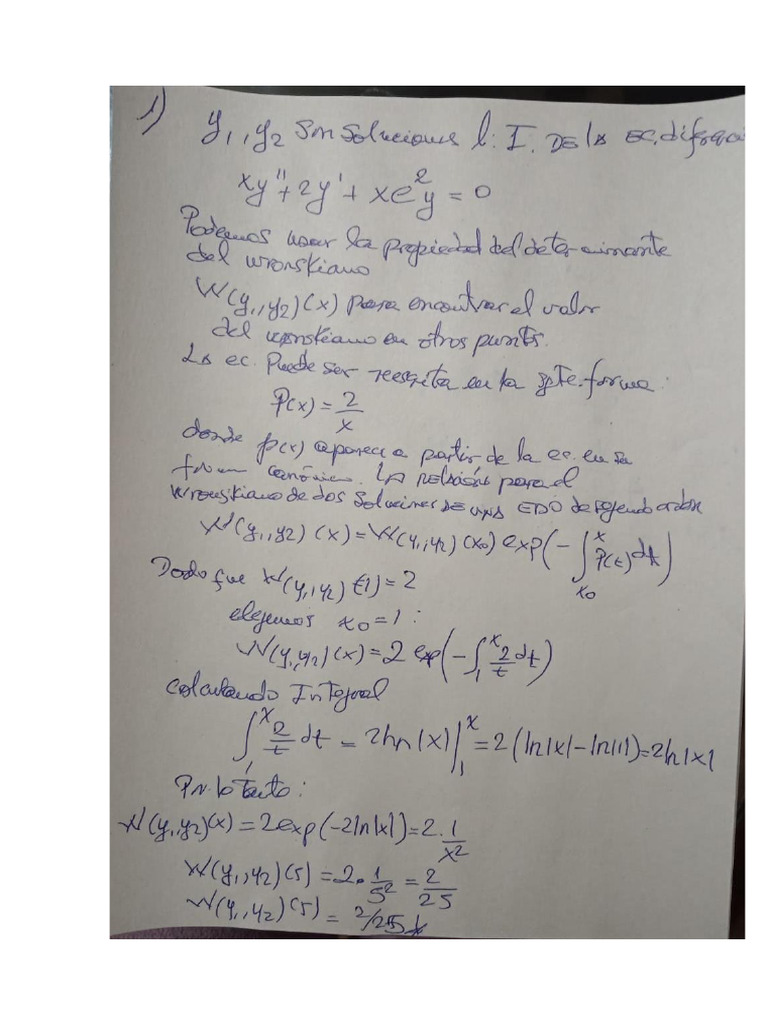 1) y₁, y₂ son soluciones l: I. DE la ec. diferenci
xy'' + 2y' + xe²y = 0
Podemos usar la propiedad del determinante
del wronskiano
W(y₁, y₂)(x) para encontrar el valor
del wronskiano en otros puntos.
La ec. Puede ser reescrita en la gte. forma:
P(x) = 2/x
donde p(x) aparece a partir de la ec. en su
forma canónica. La relación para el
wronskiano de dos soluciones de una EDO de segundo orden
W(y₁, y₂)(x) = W(y₁, y₂)(x₀) exp(-∫_{x₀}^{x} P(t) dt)
Dado que W(y₁, y₂)(1) = 2
elegimos x₀ = 1:
W(y₁, y₂)(x) = 2 exp(-∫₁ˣ 2/t dt)
Calculando Integral
∫₁ˣ 2/t dt = 2 ln(x)|₁ˣ = 2(ln|x| - ln|1|) = 2 ln|x|
Por lo tanto:
W(y₁, y₂)(x) = 2 exp(-2 ln|x|) = 2 · 1/x²
W(y₁, y₂)(5) = 2 · 1/5² = 2/25
W(y₁, y₂)(5) = 2/25